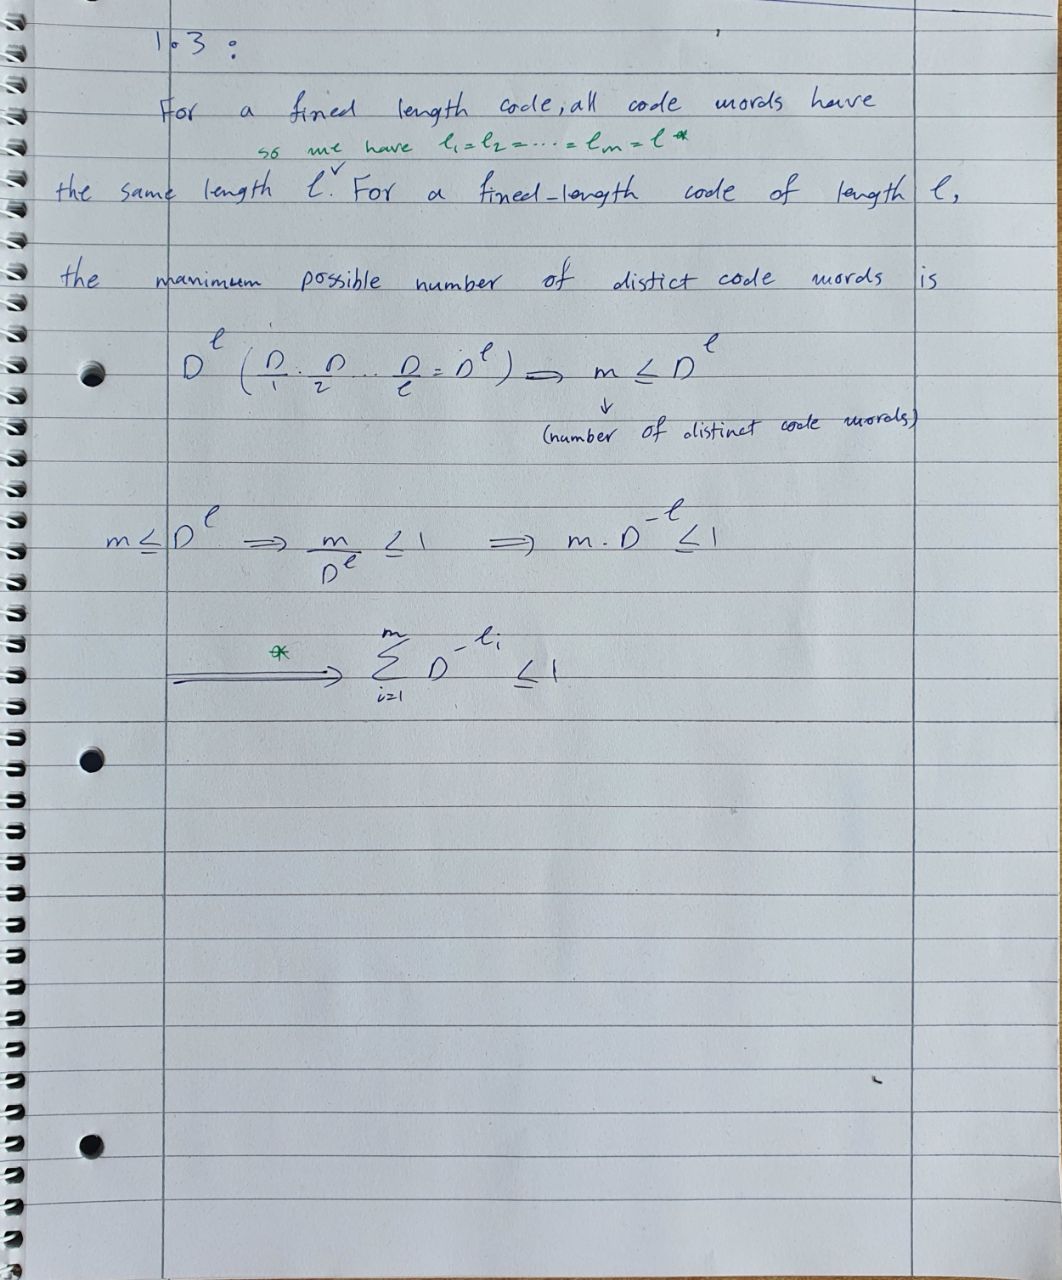 1.3 :
For a fixed length code, all code words have
so we have l₁ = l₂ = ... = lₘ = l *
the same length l. For a fixed-length code of length l,
the maximum possible number of distict code words is
D^l ( D/1 · D/2 ... D/l = D^l ) ⇒ m ≤ D^l
↓
(number of distinct code words)
m ≤ D^l ⇒ m/D^l ≤ 1 ⇒ m . D^-l ≤ 1
* ⇒ ∑_{i=1}^{m} D^-lᵢ ≤ 1